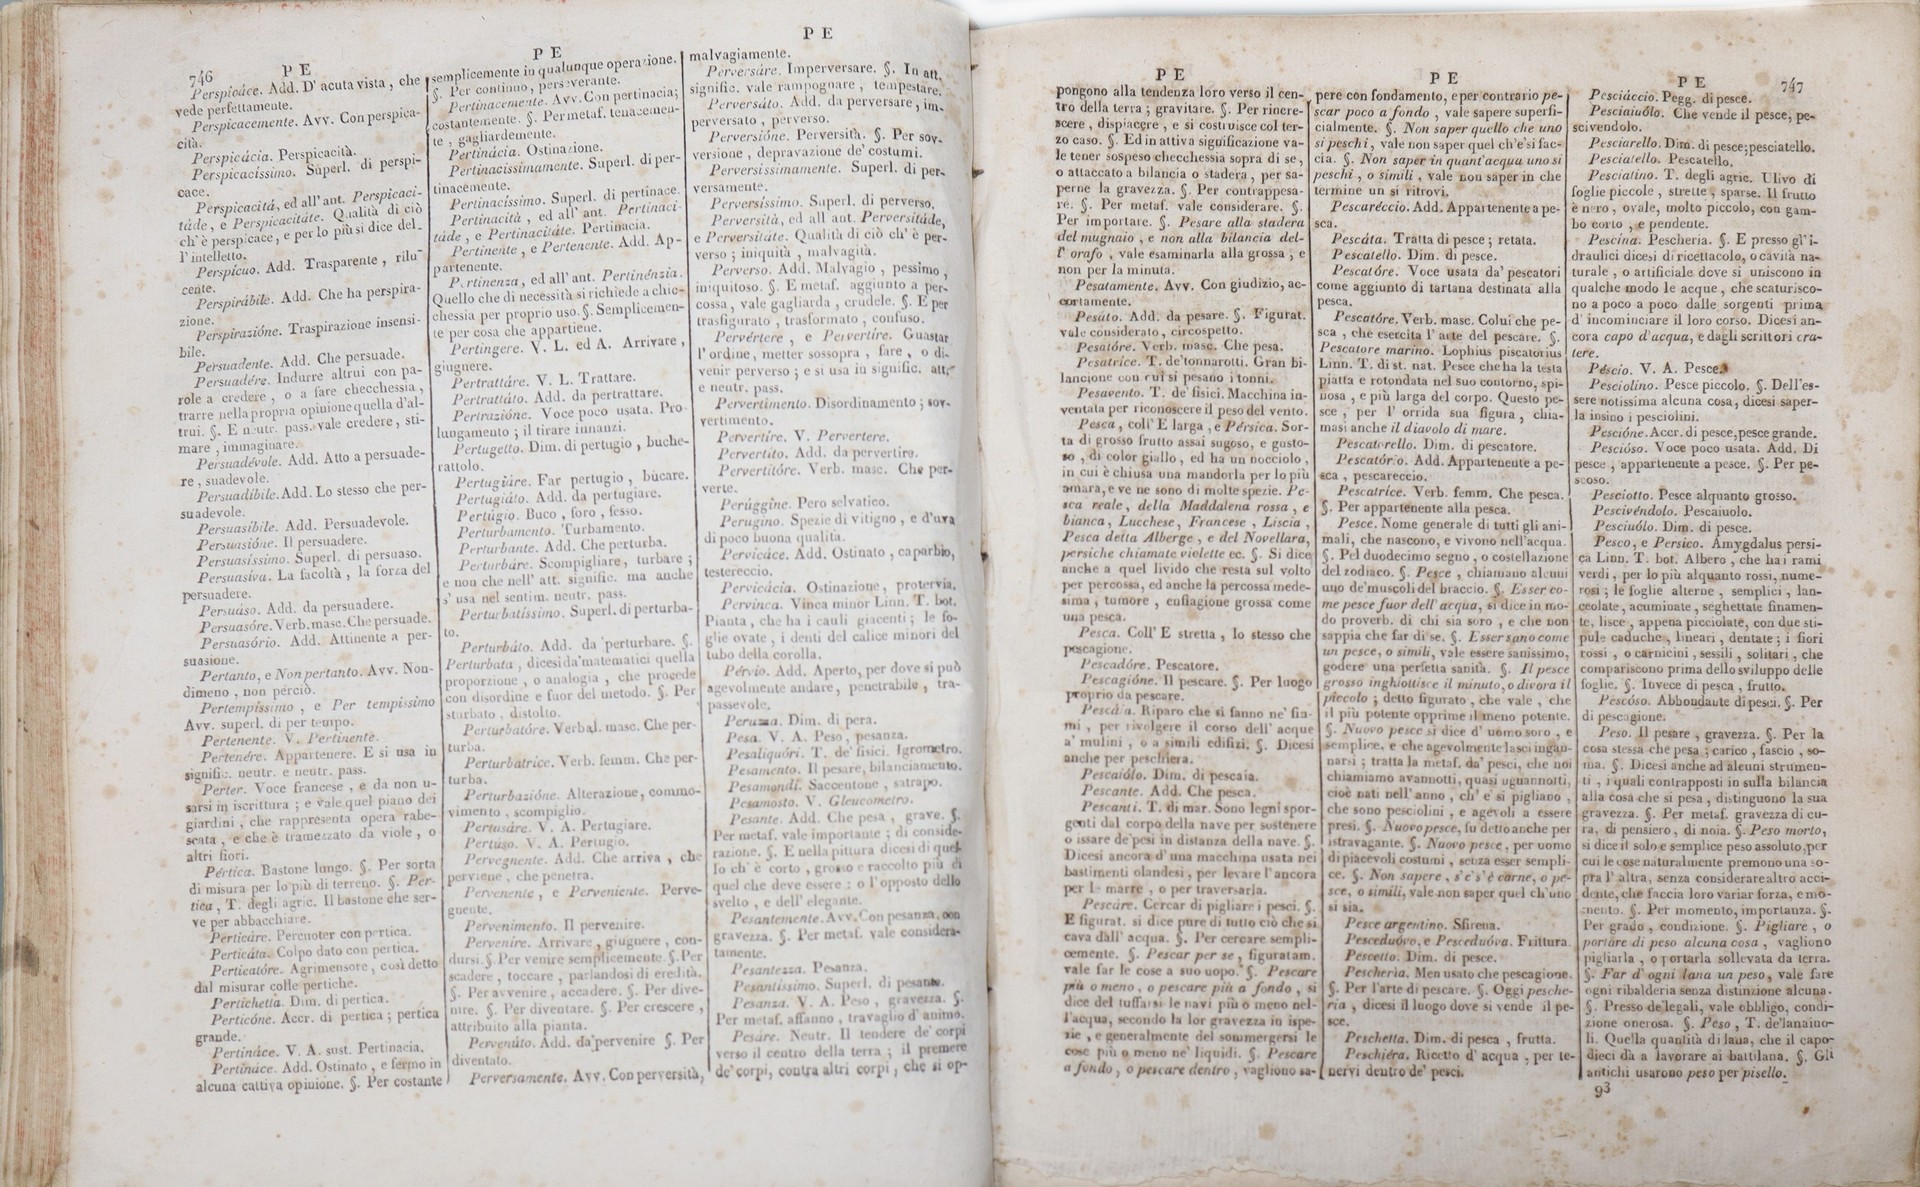 746
P E
Perspicáce. Add. D' acuta vista, che
vede perfettamente.
Perspicacemente. Avv. Con perspica-
cità.
Perspicácia. Perspicacità.
Perspicacissimo. Superl. di perspi-
cace.
Perspicacitá, ed all' ant. Perspicaci-
táde, e Perspicacitáte. Qualità di ciò
ch' è perspicace, e per lo più si dice del-
l' intelletto.
Perspicuo. Add. Trasparente, rilu-
cente.
Perspirábile. Add. Che ha perspira-
zione.
Perspirazióne. Traspirazione insensi-
bile.
Persuadente. Add. Che persuade.
Persuadére. Indurre altrui con pa-
role a credere, o a fare checchessia,
trarre nella propria opinione quella d'al-
trui. §. E neutr. pass. vale credere, sti-
mare, immaginare.
Persuadévole. Add. Atto a persuade-
re, suadevole.
Persuadibile. Add. Lo stesso che per-
suadevole.
Persuasibile. Add. Persuadevole.
Persuasióne. Il persuadere.
Persuasissimo. Superl. di persuaso.
Persuasiva. La facoltà, la forza del
persuadere.
Persuáso. Add. da persuadere.
Persuasóre. Verb. masc. Che persuade.
Persuasório. Add. Attinente a per-
suasione.
Pertanto, e Non pertanto. Avv. Non-
dimeno, non perciò.
Pertempissimo, e Per tempissimo
Avv. superl. di per tempo.
Pertenente. V. Pertinente.
Pertenére. Appartenere. E si usa in
signific. neutr. e neutr. pass.
Perter. Voce francese, e da non u-
sarsi in iscrittura; e vale quel piano dei
giardini, che rappresenta opera rabe-
scata, e che è tramezzato da viole, o
altri fiori.
Pértica. Bastone lungo. §. Per sorta
di misura per lo più di terreno. §. Per-
tica, T. degli agric. Il bastone che ser-
ve per abbacchiare.
Perticáre. Percuoter con pertica.
Perticáta. Colpo dato con pertica.
Perticatóre. Agrimensore, così detto
dal misurar colle pertiche.
Pertichetta. Dim. di pertica.
Perticóne. Accr. di pertica; pertica
grande.
Pertináce. V. A. sust. Pertinacia.
Pertináce. Add. Ostinato, e fermo in
alcuna cattiva opinione. §. Per costante
P E
semplicemente in qualunque operazione.
§. Per continuo, perseverante.
Pertinacemente. Avv. Con pertinacia;
costantemente. §. Per metaf. tenacemen-
te, gagliardemente.
Pertinácia. Ostinazione.
Pertinacissimamente. Superl. di per-
tinacemente.
Pertinacissimo. Superl. di pertinace.
Pertinacitá, ed all' ant. Pertinaci-
táde, e Pertinacitáte. Pertinacia.
Pertinente, e Pertenente. Add. Ap-
partenente.
Pertinenza, ed all' ant. Pertinénzia.
Quello che di necessità si richiede a chic-
chessia per proprio uso. §. Semplicemen-
te per cosa che appartiene.
Pertingere. V. L. ed A. Arrivare,
giugnere.
Pertrattáre. V. L. Trattare.
Pertrattáto. Add. da pertrattare.
Pertrazióne. Voce poco usata. Pro
lungamento; il tirare innanzi.
Pertugetto. Dim. di pertugio, buche-
rattolo.
Pertugiáre. Far pertugio, bucare.
Pertugiáto. Add. da pertugiare.
Pertúgio. Buco, foro, fesso.
Perturbamento. Turbamento.
Perturbante. Add. Che perturba.
Perturbáre. Scompigliare, turbare;
e non che nell' att. signific. ma anche
s' usa nel sentim. neutr. pass.
Perturbatíssimo. Superl. di perturba-
to.
Perturbáto. Add. da perturbare. §.
Perturbata, dicesi da'matematici quella
proporzione, o analogia, che procede
con disordine e fuor del metodo. §. Per
sturbato, distolto.
Perturbatóre. Verbal. masc. Che per-
turba.
Perturbatrice. Verb. femm. Che per-
turba.
Perturbazióne. Alterazione, commo-
vimento, scompiglio.
Pertusáre. V. A. Pertugiare.
Pertúso. V. A. Pertugio.
Pervegnente. Add. Che arriva, che
perviene, che penetra.
Pervenente, e Perveniente. Perve-
gnente.
Pervenimento. Il pervenire.
Pervenire. Arrivare, giugnere, con-
dursi. §. Per venire semplicemente. §. Per
scadere, toccare, parlandosi di eredità.
§. Per avvenire, accadere. §. Per dive-
nire. §. Per diventare. §. Per crescere,
attribuito alla pianta.
Pervenúto. Add. da pervenire §. Per
diventato.
Perversamente. Avv. Con perversità,
P E
malvagiamente.
Perversáre. Imperversare. §. In att.
signific. vale rampognare, tempestare.
Perversáto. Add. da perversare, im-
perversato, perverso.
Perversióne. Perversità. §. Per sov-
versione, depravazione de' costumi.
Perversissimamente. Superl. di per-
versamente.
Perversissimo. Superl. di perverso.
Perversitá, ed all ant. Perversitáde,
e Perversitáte. Qualità di ciò ch' è per-
verso; iniquità, malvagità.
Perverso. Add. Malvagio, pessimo,
iniquitoso. §. E metaf. aggiunto a per-
cossa, vale gagliarda, crudele. §. E per
trasfigurato, trasformato, confuso.
Pervértere, e Pervertire. Guastar
l' ordine, metter sossopra, fare, o di-
venir perverso; e si usa in signific. att.
e neutr. pass.
Pervertimento. Disordinamento; sov-
vertimento.
Pervertíre. V. Pervertere.
Pervertito. Add. da pervertire.
Pervertitóre. Verb. masc. Che per-
verte.
Perúggine. Pero selvatico.
Perugino. Spezie di vitigno, e d'uva
di poco buona qualità.
Pervicáce. Add. Ostinato, caparbio,
testereccio.
Pervicácia. Ostinazione, protervia.
Pervinca. Vinca minor Linn. T. bot.
Pianta, che ha i cauli giacenti; le fo-
glie ovate, i denti del calice minori del
tubo della corolla.
Pérvio. Add. Aperto, per dove si può
agevolmente andare, penetrabile, tra-
passevole.
Peruzza. Dim. di pera.
Pesa. V. A. Peso, pesanza.
Pesaliquóri. T. de' fisici. Igrometro.
Pesamento. Il pesare, bilanciamento.
Pesamondi. Saccentone, satrapo.
Pesamosto. V. Gleucometro.
Pesante. Add. Che pesa, grave. §.
Per metaf. vale importante; di conside-
razione. §. E nella pittura dicesi di quel-
lo ch' è corto, grosso e raccolto più di
quel che deve essere: o l'opposto dello
svelto, e dell' elegante.
Pesantemente. Avv. Con pesanza, con
gravezza. §. Per metaf. vale considera-
tamente.
Pesantezza. Pesanza.
Pesantíssimo. Superl. di pesante.
Pesanza. V. A. Peso, gravezza. §.
Per metaf. affanno, travaglio d'animo.
Pesáre. Neutr. Il tendere de' corpi
verso il centro della terra; il premere
de' corpi, contra altri corpi, che si op-
P E
pongono alla tendenza loro verso il cen-
tro della terra; gravitare. §. Per rincre-
scere, dispiacere, e si costruisce col ter-
zo caso. §. Ed in attiva significazione va-
le tener sospeso checchessia sopra di se,
o attaccato a bilancia o stadera, per sa-
perne la gravezza. §. Per contrappesa-
re. §. Per metaf. vale considerare. §.
Per importare. §. Pesare alla stadera
del mugnaio, e non alla bilancia del-
l' orafo, vale esaminarla alla grossa, e
non per la minuta.
Pesatamente. Avv. Con giudizio, ac-
cortamente.
Pesáto. Add. da pesare. §. Figurat.
vale considerato, circospetto.
Pesatóre. Verb. masc. Che pesa.
Pesatrice. T. de'tonnarotti. Gran bi-
lancione con cui si pesano i tonni.
Pesavento. T. de' fisici. Macchina in-
ventata per riconoscere il peso del vento.
Pesca, coll' E larga, e Pérsica. Sor-
ta di grosso frutto assai sugoso, e gusto-
so, di color giallo, ed ha un nocciolo,
in cui è chiusa una mandorla per lo più
amara, e ve ne sono di molte spezie. Pe-
sca reale, della Maddalena rossa, e
bianca, Lucchese, Francese, Liscia,
Pesca detta Alberge, e del Novellara,
persiche chiamate violette ec. §. Si dice
anche a quel livido che resta sul volto
per percossa, ed anche la percossa mede-
sima, tumore, enfiagione grossa come
una pesca.
Pesca. Coll' E stretta, lo stesso che
pescagione.
Pescadóre. Pescatore.
Pescagióne. Il pescare. §. Per luogo
proprio da pescare.
Pescáia. Riparo che si fanno ne' fiu-
mi, per rivolgere il corso dell' acque
a' mulini, o a simili edifizi. §. Dicesi
anche per peschiera.
Pescaiólo. Dim. di pescaia.
Pescante. Add. Che pesca.
Pescanti. T. di mar. Sono legni spor-
genti dal corpo della nave per sostenere
o issare de' pesi in distanza della nave. §.
Dicesi ancora d' una macchina usata nei
bastimenti olandesi, per levare l'ancora
per le marre, o per traversarla.
Pescáre. Cercar di pigliare i pesci. §.
E figurat. si dice pure di tutto ciò che si
cava dall' acqua. §. Per cercare sempli-
cemente. §. Pescar per se, figuratam.
vale far le cose a suo uopo. §. Pescare
più o meno, o pescare più a fondo, si
dice del tuffarsi le navi più o meno nel-
l'acqua, secondo la lor gravezza in ispe-
zie, e generalmente del sommergersi le
cose più o meno ne' liquidi. §. Pescare
a fondo, o pescare dentro, vagliono sa-
P E
pere con fondamento, e per contrario pe-
scar poco a fondo, vale sapere superfi-
cialmente. §. Non saper quello che uno
si peschi, vale non saper quel ch'e'si fac-
cia. §. Non saper in quant'acqua uno si
peschi, o simili, vale non saper in che
termine un si ritrovi.
Pescaréccio. Add. Appartenente a pe-
sca.
Pescáta. Tratta di pesce; retata.
Pescatello. Dim. di pesce.
Pescatóre. Voce usata da' pescatori
come aggiunto di tartana destinata alla
pesca.
Pescatóre. Verb. masc. Colui che pe-
sca, che esercita l' arte del pescare. §.
Pescatore marino. Lophius piscatorius
Linn. T. di st. nat. Pesce che ha la testa
piatta e rotondata nel suo contorno, spi-
nosa, e più larga del corpo. Questo pe-
sce, per l' orrida sua figura, chia-
masi anche il diavolo di mare.
Pescatorello. Dim. di pescatore.
Pescatório. Add. Appartenente a pe-
sca, pescareccio.
Pescatríce. Verb. femm. Che pesca.
§. Per appartenente alla pesca.
Pesce. Nome generale di tutti gli ani-
mali, che nascono, e vivono nell'acqua.
§. Pel duodecimo segno, o costellazione
del zodiaco. §. Pesce, chiamano alcuni
uno de'muscoli del braccio. §. Esser co-
me pesce fuor dell' acqua, si dice in mo-
do proverb. di chi sia soro, e che non
sappia che far di se. §. Esser sano come
un pesce, o simili, vale essere sanissimo,
godere una perfetta sanità. §. Il pesce
grosso inghiottisce il minuto, o divora il
piccolo; detto figurato, che vale, che
il più potente opprime il meno potente.
§. Nuovo pesce si dice d' uomo soro, e
semplice, e che agevolmente lasci ingan-
narsi; tratta la metaf. da' pesci, che noi
chiamiamo avannotti, quasi uguannotti,
cioè nati nell'anno, ch' e' si pigliano,
che sono pesciolini, e agevoli a essere
presi. §. Nuovo pesce, fu detto anche per
istravagante. §. Nuovo pesce, per uomo
di piacevoli costumi, senza esser sempli-
ce. §. Non sapere, s'e's'è carne, o pe-
sce, o simili, vale non saper quel ch'uno
si sia.
Pesce argentino. Sfirena.
Pesceduóvo, e Pesceduóva. Frittura.
Pescetto. Dim. di pesce.
Pescheria. Men usato che pescagione.
§. Per l'arte di pescare. §. Oggi pesche-
ria, dicesi il luogo dove si vende il pe-
sce.
Peschetta. Dim. di pesca, frutta.
Peschiéra. Ricetto d' acqua, per te-
nervi dentro de' pesci.
P E
747
Pesciáccio. Pegg. di pesce.
Pesciaiuólo. Che vende il pesce, pe-
scivendolo.
Pesciarello. Dim. di pesce; pesciatello.
Pesciatello. Pescatello.
Pesciatino. T. degli agric. Ulivo di
foglie piccole, strette, sparse. Il frutto
è nero, ovale, molto piccolo, con gam-
bo corto, e pendente.
Pescina. Pescheria. §. E presso gl' i-
draulici dicesi di ricettacolo, o cavità na-
turale, o artificiale dove si uniscono in
qualche modo le acque, che scaturisco-
no a poco a poco dalle sorgenti prima
d' incominciare il loro corso. Dicesi an-
cora capo d'acqua, e dagli scrittori cra-
tere.
Péscio. V. A. Pesce.
Pesciolino. Pesce piccolo. §. Dell'es-
sere notissima alcuna cosa, dicesi saper-
la insino i pesciolini.
Pescióne. Accr. di pesce, pesce grande.
Pescióso. Voce poco usata. Add. Di
pesce, appartenente a pesce. §. Per pe-
scoso.
Pesciotto. Pesce alquanto grosso.
Pescivéndolo. Pescaiuolo.
Pesciuólo. Dim. di pesce.
Pesco, e Persico. Amygdalus persi-
ca Linn. T. bot. Albero, che ha i rami
verdi, per lo più alquanto rossi, nume-
rosi; le foglie alterne, semplici, lan-
ceolate, acuminate, seghettate finamen-
te, lisce, appena picciolate, con due sti-
pule caduche, lineari, dentate; i fiori
rossi, o carnicini, sessili, solitari, che
compariscono prima dello sviluppo delle
foglie. §. Invece di pesca, frutto.
Pescóso. Abbondante di pesci. §. Per
di pescagione.
Peso. Il pesare, gravezza. §. Per la
cosa stessa che pesa; carico, fascio, so-
ma. §. Dicesi anche ad alcuni strumen-
ti, i quali contrapposti in sulla bilancia
alla cosa che si pesa, distinguono la sua
gravezza. §. Per metaf. gravezza di cu-
ra, di pensiero, di noia. §. Peso morto,
si dice il solo e semplice peso assoluto, per
cui le cose naturalmente premono una so-
pra l' altra, senza considerare altro acci-
dente, che faccia loro variar forza, e mo-
mento. §. Per momento, importanza. §.
Per grado, condizione. §. Pigliare, o
portáre di peso alcuna cosa, vagliono
pigliarla, o portarla sollevata da terra.
§. Far d' ogni lana un peso, vale fare
ogni ribalderia senza distinzione alcuna.
§. Presso de'legali, vale obbligo, condi-
zione onerosa. §. Peso, T. de'lanaiuo-
li. Quella quantità di lana, che il capo-
dieci dà a lavorare ai battilana. §. Gli
antichi usarono peso per pisello.
93